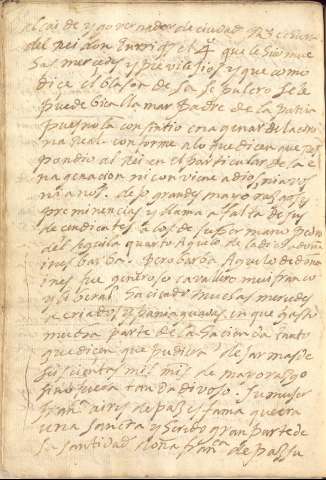 alcaide y governador de ciudad
del Rei don enrriq. el 4º que le hiço mu
chas mercedes y previlejios y que como
dice el blason de la se palcro se le
puede bien llamar Padre de la Patria
pues no la consintio enagenar de la coro
na Real conforme a lo que dicen que res
pondio al Rei en el particular de la e
nagenacion ni conviene a dios ni a vos
ni a nos. dejo grandes mayorasgos y
preminencias y llama a falta de sus
decendientes a los de su hermano pedro
del aguila quarto Aguelo de la dicha doña
ines barba. Pero barba Aguelo de doña
ines fue generoso cavallero mui franco
y liberal haciendo muchas mercedes
a criados y paniaguados en que gasto
mucha parte de la hacienda tanto
que dicen que pudiera dejar mas de
seiscientos mil mrs de mayorasgo
si no fuera tan dadivoso. Su muger
fran.ca aires de paz es fama que era
una sancta y heredo gran parte de
la santidad doña fran.ca de paz su